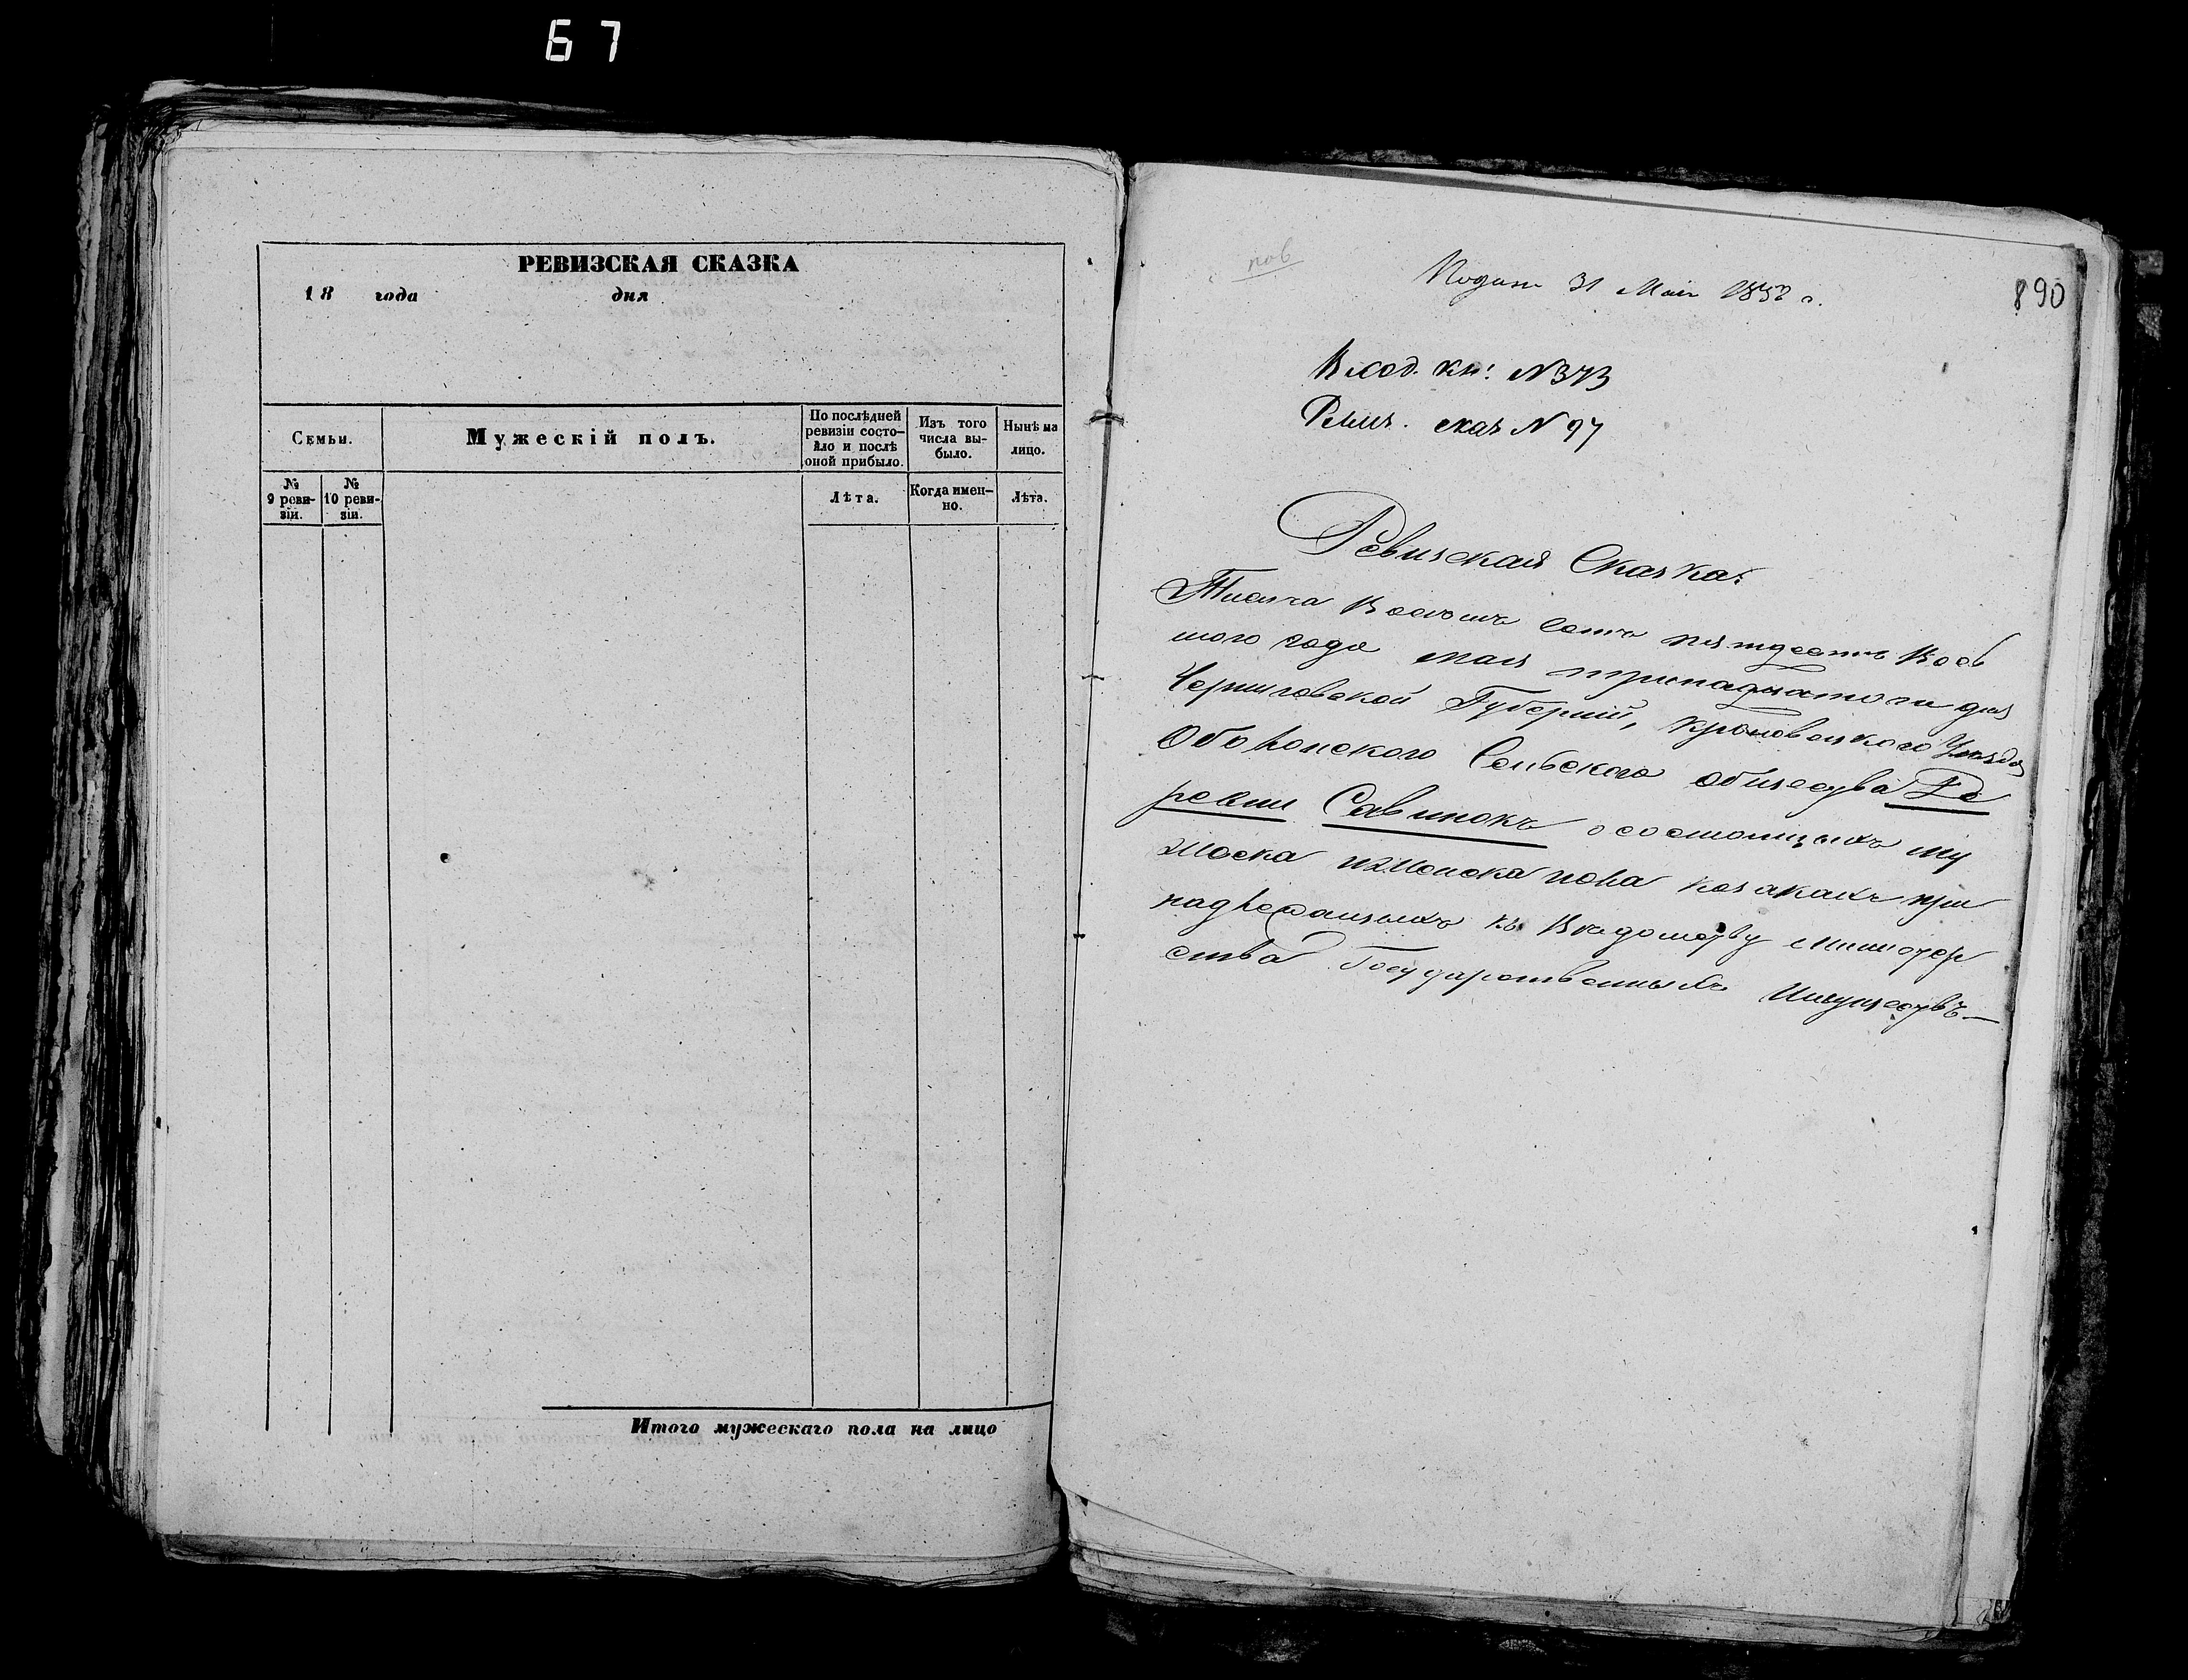 67
РЕВИЗСКАЯ СКАЗКА
18 года дня
Семьи.
Мужескій полъ.
По послѣдней ревизіи состо-
яло и послѣ
оной прибыло.
Изъ того
числа вы-
было.
Нынѣ на
лицо.
№
9 реви-
зіи.
№
10 реви-
зіи.
Лѣта.
Когда имен-
но.
Лѣта.
Итого мужескаго пола на лицо
пов
Подана 31 Мая 1858 г.
890
Вход. кн: N 373
Ревиз. сказ N 97
Ревизская Сказка:
Тысяча Восемь Сотъ пятдесятъ Вось
мого года мая тринадцатого дня
Черниговской Губерніи, Кролевецкого Уѣзда
Оболонского Сельского общества Де
ревни Савинокъ о состоящихъ му
жеска и женска пола козакахъ при
надлежащихъ къ Вѣдомству Министер
ства Государственныхъ Имуществъ